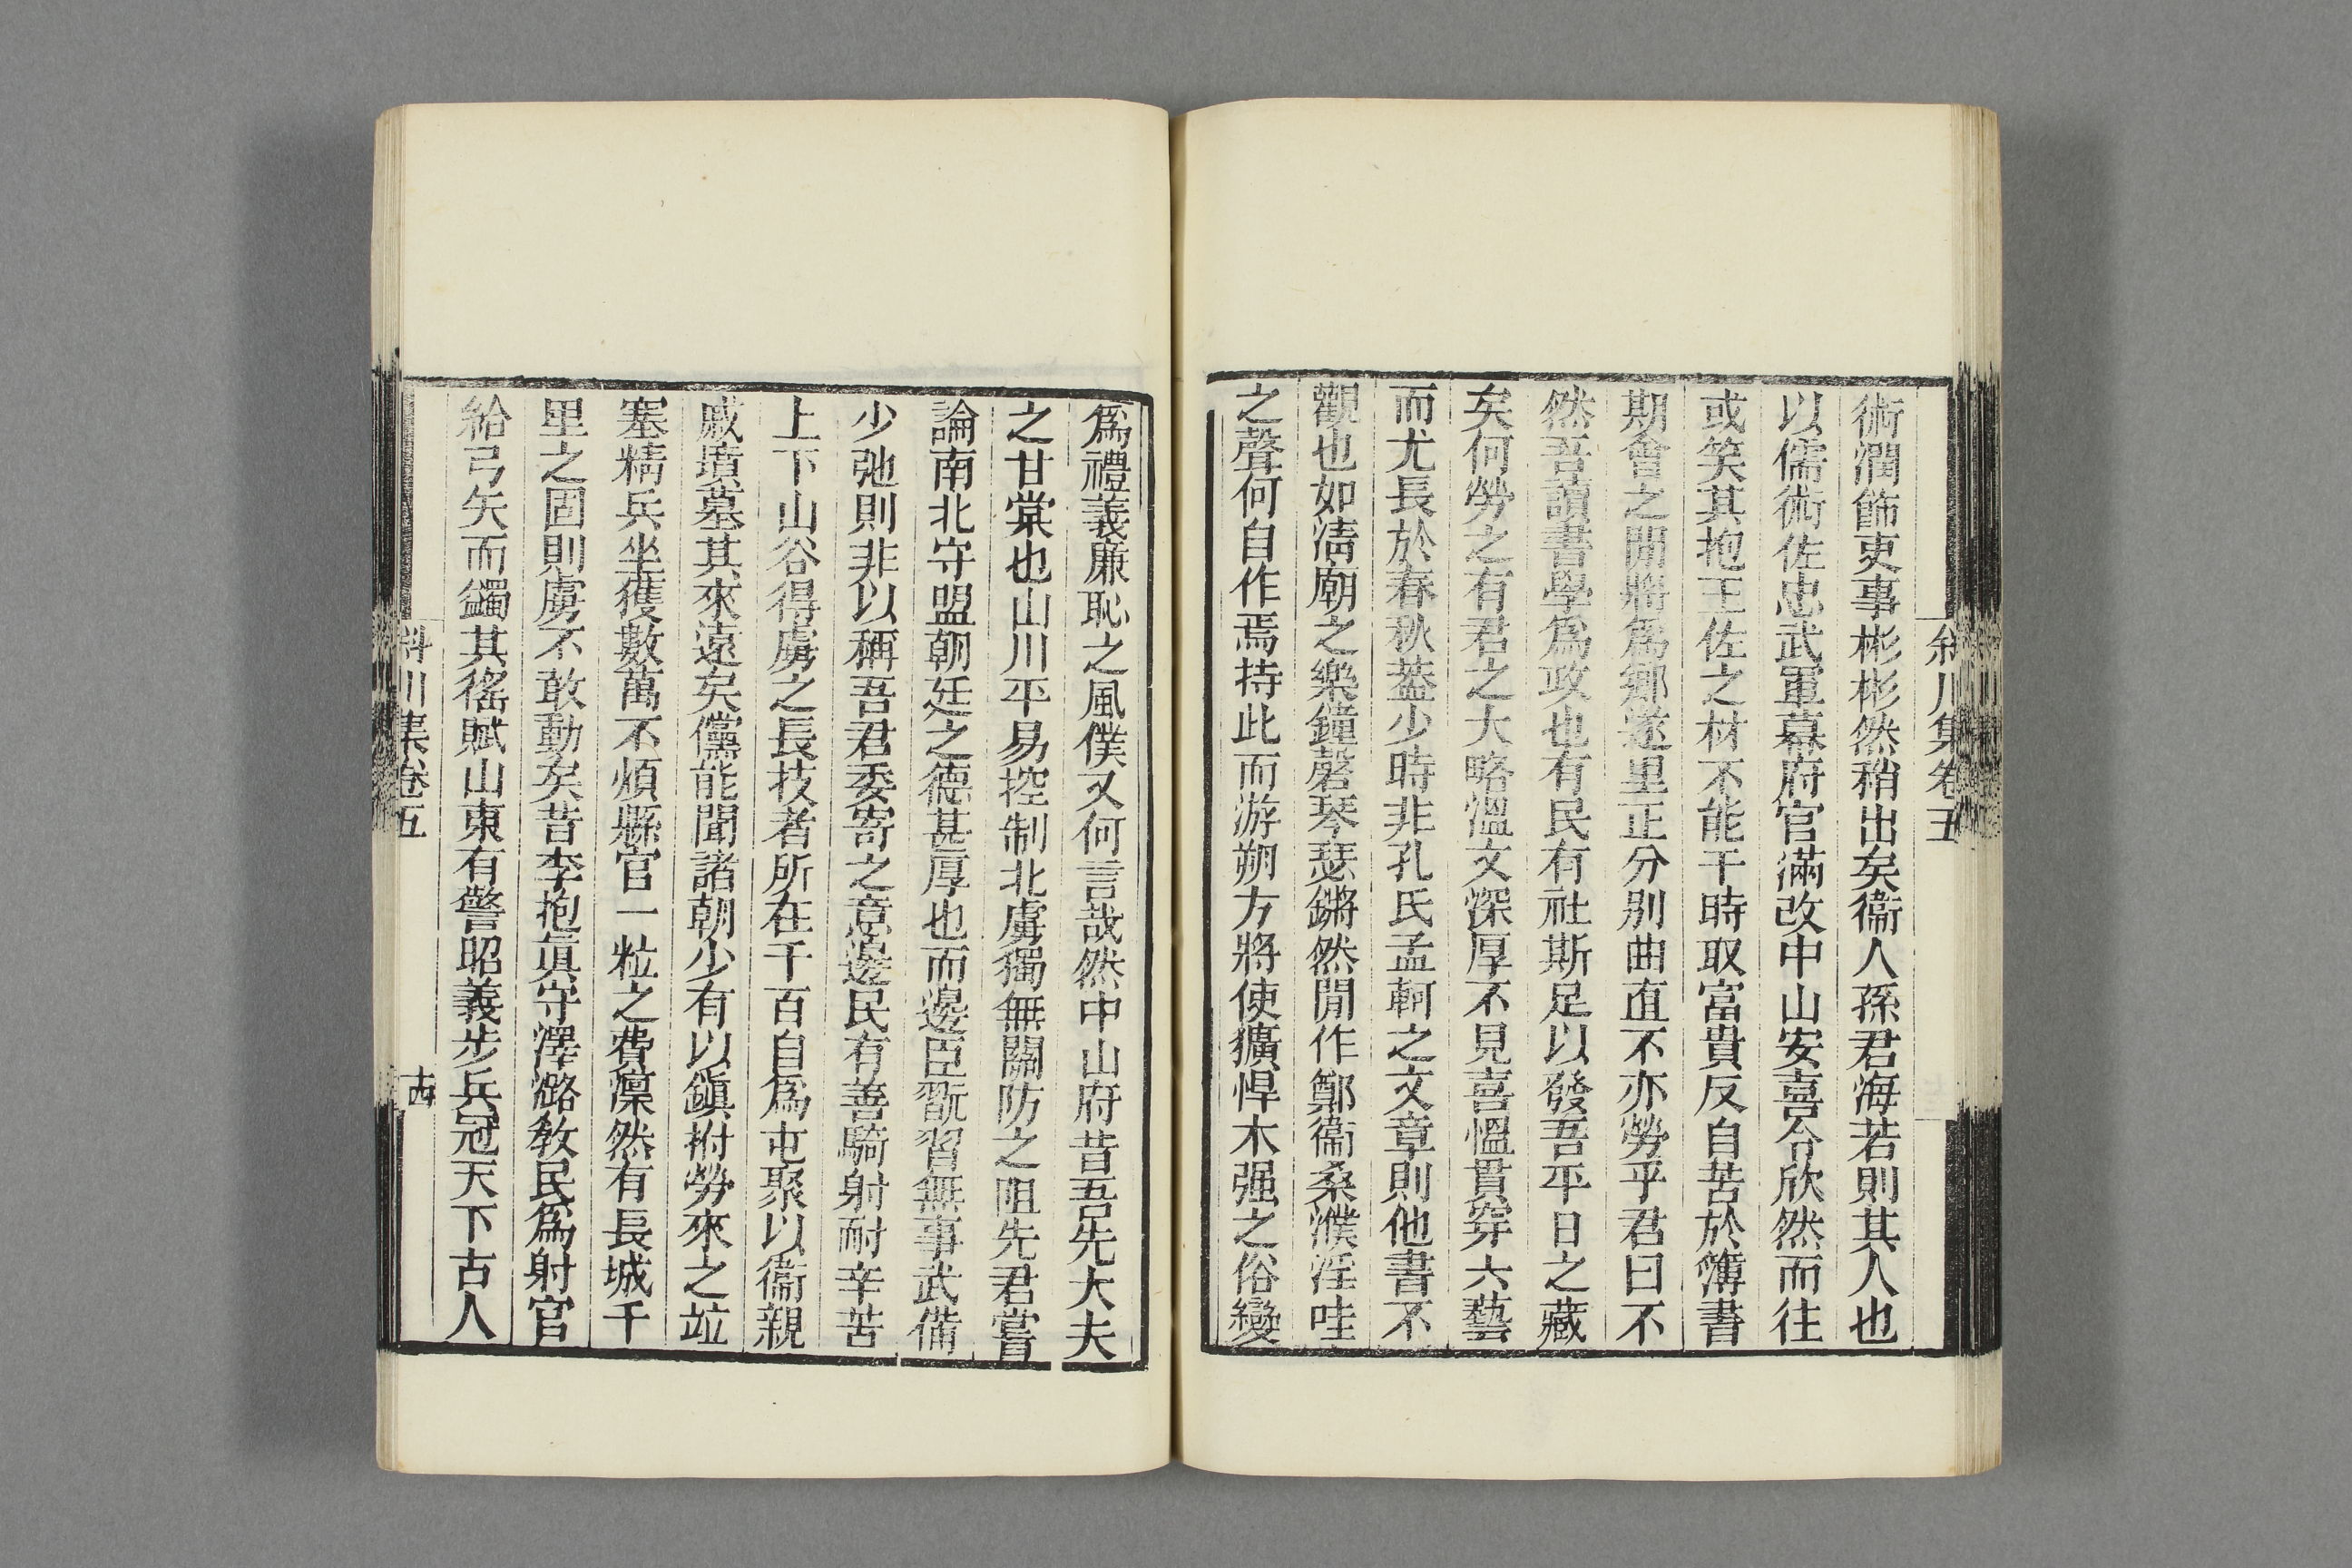 斜川集卷五
術潤飾吏事彬彬然稍出矣衞人孫君海若則其人也
以儒術佐忠武軍幕府官滿改中山安喜令欣然而往
或笑其抱王佐之材不能干時取富貴反自苦於簿書
期會之閒將爲鄉遂里正分别曲直不亦勞乎君曰不
然吾讀書學爲政也有民有社斯足以發吾平日之藏
矣何勞之有君之大略溫文深厚不見喜慍貫穿六藝
而尤長於春秋葢少時非孔氏孟軻之文章則他書不
觀也如淸廟之樂鐘磬琴瑟鏘然閒作鄭衞桑濮淫哇
之聲何自作焉持此而游朔方將使獷悍木强之俗變
爲禮義廉恥之風僕又何言哉然中山府昔吾先大夫
之甘棠也山川平易控制北虜獨無關防之阻先君嘗
論南北守盟朝廷之德甚厚也而邊臣翫習無事武備
少弛則非以稱吾君委寄之意邊民有善騎射耐辛苦
上下山谷得虜之長技者所在千百自爲屯聚以衞親
戚墳墓其來遠矣儻能聞諸朝少有以鎭拊勞來之竝
塞精兵坐獲數萬不煩縣官一粒之費凜然有長城千
里之固則虜不敢動矣昔李抱眞守澤潞敎民爲射官
給弓矢而蠲其徭賦山東有警昭義步兵冠天下古人
斜川集卷五
十四